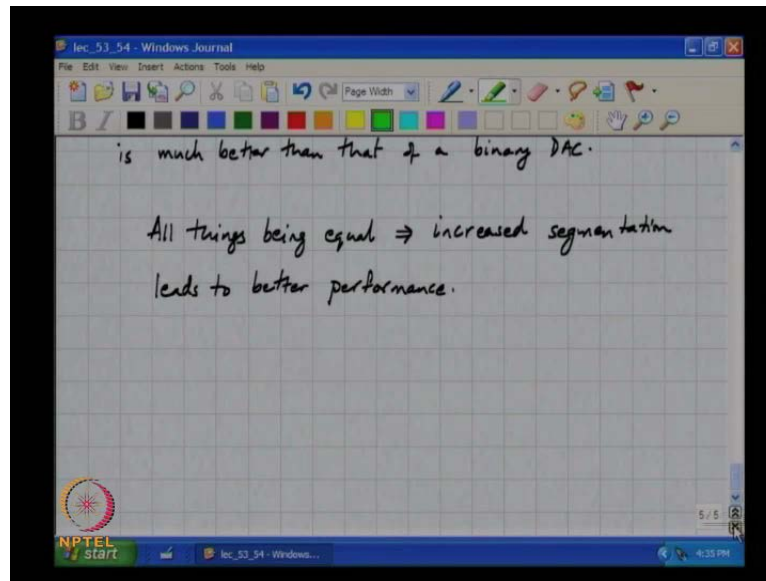 lec_53_54 - Windows Journal
File Edit View Insert Actions Tools Help
Page Width
B I
is much better than that of a binary DAC.
All things being equal ⇒ increased segmentation
leads to better performance.
5/5
NPTEL
start
lec_53_54 - Windows...
4:35 PM